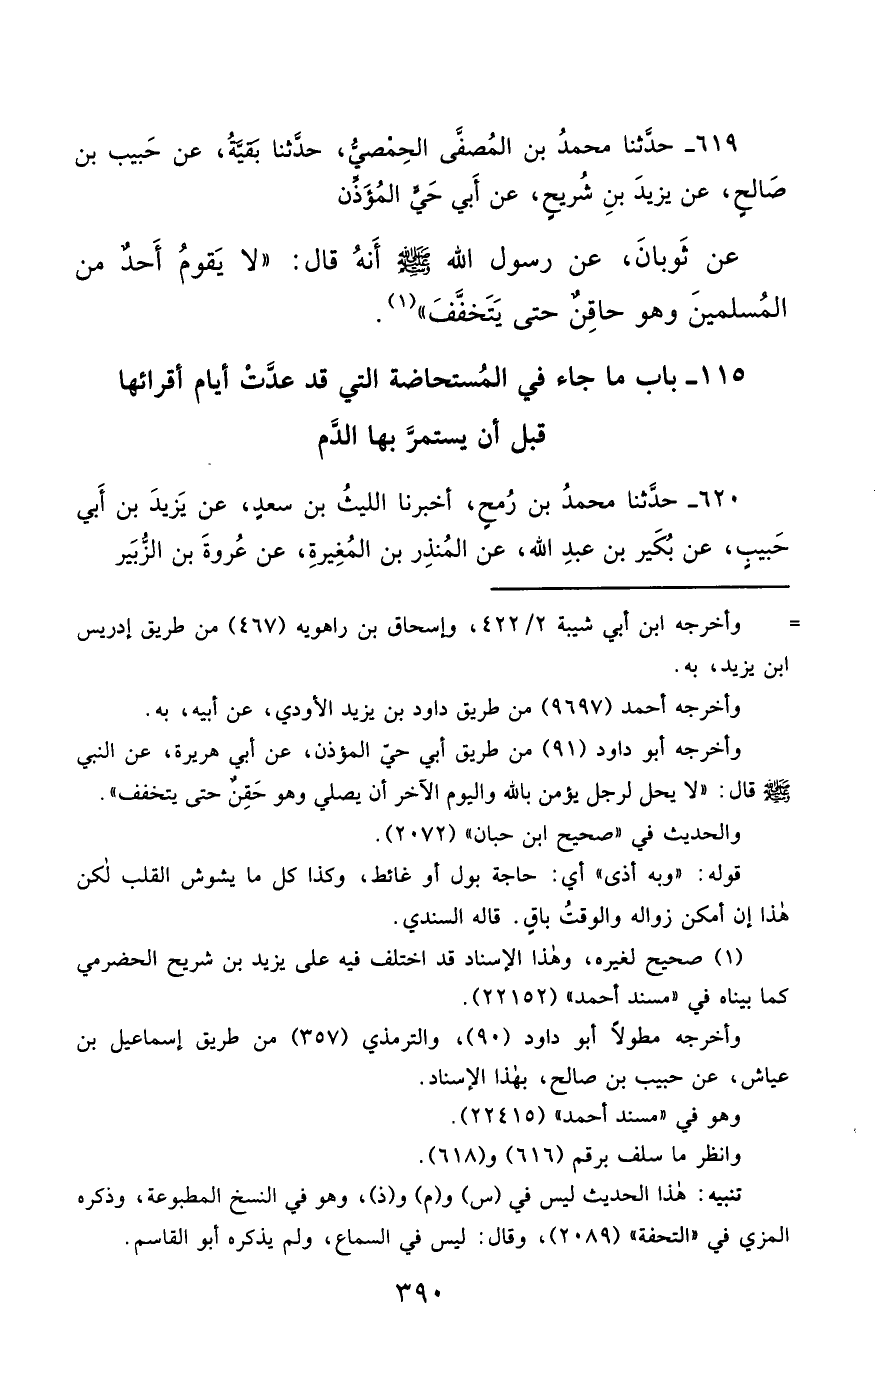 ٦١٩ـ حدَّثنا محمدُ بن المُصفَّى الحِمْصيُّ، حدَّثنا بَقيَّةُ، عن حَبيب بن
صَالحٍ، عن يزيدَ بنِ شُريحٍ، عن أَبي حَيٍّ المُؤَذِّن
عن ثَوبانَ، عن رسول الله ﷺ أَنهُ قال: «لا يَقومُ أَحدٌ من
المُسلمينَ وهو حاقِنٌ حتى يَتَخفَّفَ»(١).
١١٥ـ باب ما جاء في المُستحاضة التي قد عدَّتْ أيام أقرائها
قبل أن يستمرَّ بها الدَّم
٦٢٠ـ حدَّثنا محمدُ بن رُمحٍ، أخبرنا الليثُ بن سعدٍ، عن يَزيدَ بن أَبي
حَبيبٍ، عن بُكَير بن عبدِ الله، عن المُنذِر بن المُغِيرةِ، عن عُروةَ بن الزُّبَير
= وأخرجه ابن أبي شيبة ٢/ ٤٢٢، وإسحاق بن راهويه (٤٦٧) من طريق إدريس
ابن يزيد، به.
وأخرجه أحمد (٩٦٩٧) من طريق داود بن يزيد الأودي، عن أبيه، به.
وأخرجه أبو داود (٩١) من طريق أبي حيّ المؤذن، عن أبي هريرة، عن النبي
ﷺ قال: «لا يحل لرجل يؤمن بالله واليوم الآخر أن يصلي وهو حَقِنٌ حتى يتخفف».
والحديث في «صحيح ابن حبان» (٢٠٧٢).
قوله: «وبه أذى» أي: حاجة بول أو غائط، وكذا كل ما يشوش القلب لٰكن
هٰذا إن أمكن زواله والوقتُ باقٍ. قاله السندي.
(١) صحيح لغيره، وهٰذا الإسناد قد اختلف فيه على يزيد بن شريح الحضرمي
كما بيناه في «مسند أحمد» (٢٢١٥٢).
وأخرجه مطولاً أبو داود (٩٠)، والترمذي (٣٥٧) من طريق إسماعيل بن
عياش، عن حبيب بن صالح، بهٰذا الإسناد.
وهو في «مسند أحمد» (٢٢٤١٥).
وانظر ما سلف برقم (٦١٦) و(٦١٨).
تنبيه: هٰذا الحديث ليس في (س) و(م) و(ذ)، وهو في النسخ المطبوعة، وذكره
المزي في «التحفة» (٢٠٨٩)، وقال: ليس في السماع، ولم يذكره أبو القاسم.
٣٩٠